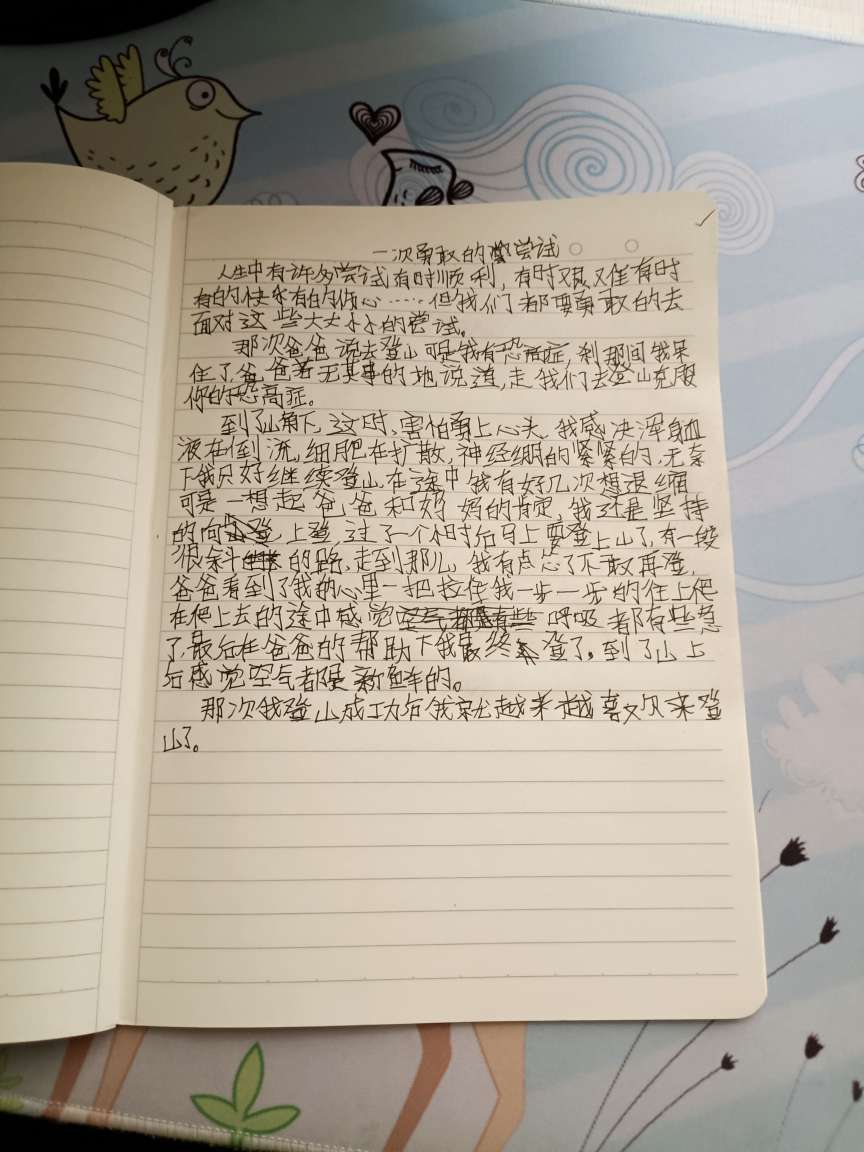 一次勇敢的尝试
人生中有许多尝试有时顺利，有时艰又难有时
有的快乐有的伤心……但我们都要勇敢的去
面对这些大大小小的尝试。
那次爸爸说去登山可是我有恐高症，刹那间我呆
住了，爸爸若无其事的地说道，走，我们去登山克服
你的恐高症。
到了山脚下，这时，害怕勇上心头，我感决浑身血
液在倒流，细胞在扩散，神经绷的紧紧的，无奈
下我只好继续登山，在途中我有好几次想退缩
可是一想起爸爸和妈妈的肯定，我还是坚持
的向上登，过了一个小时后马上要登上山了，有一段
很斜的路，走到那儿，我有点忘了不敢再登，
爸爸看到了我的心里一把拉住我一步一步的往上爬
在爬上去的途中感觉呼吸都有些急
了，最后在爸爸的帮助下我最终登了。到了山上
后感觉空气都是新鲜的。
那次我登山成功后我就越来越喜欢来登
山了。